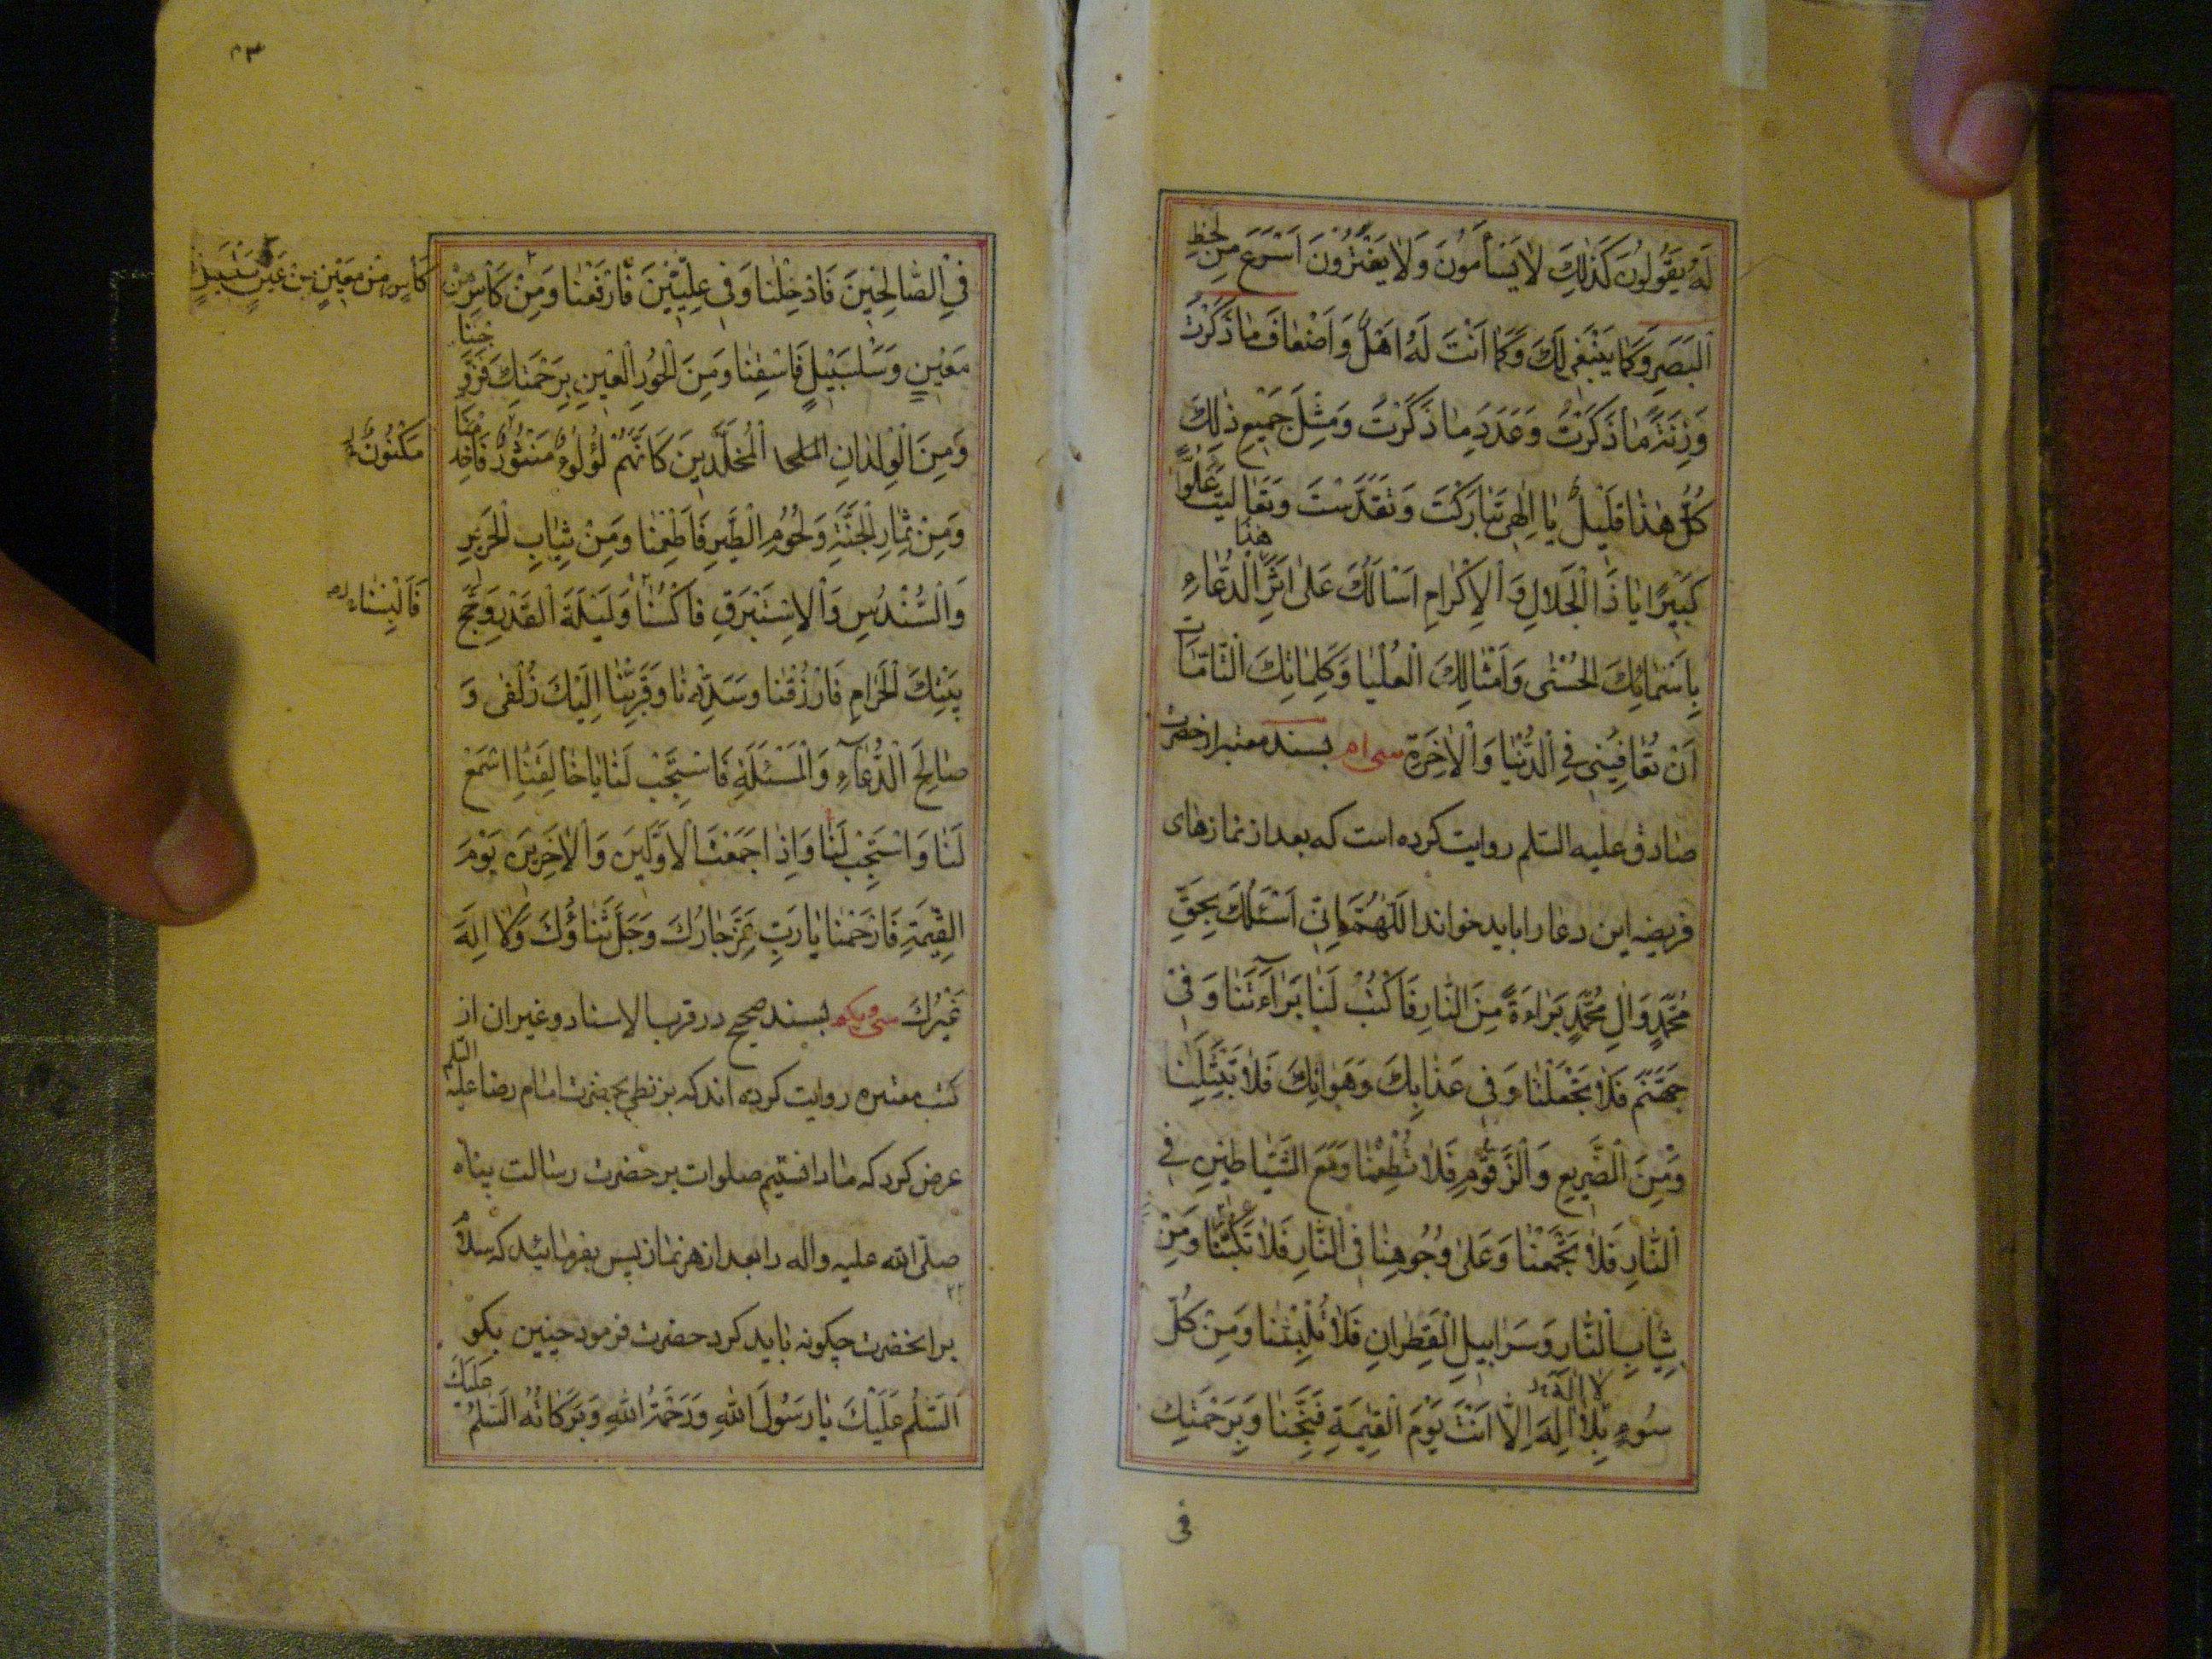 لَهُ يَقُولُونَ كَذٰلِكَ لَا يَسْأَمُونَ وَلَا يَفْتُرُونَ اَسْرَعَ مِنْ لَحْظِ
الْبَصَرِ وَكَمَا يَنْبَغِي لَكَ وَكَمَا اَنْتَ لَهُ اَهْلٌ وَاَضْعَافَ مَا ذَكَرْتُ
وَزِنَةَ مَا ذَكَرْتُ وَعَدَدَ مَا ذَكَرْتُ وَمِثْلَ جَمِيعِ ذٰلِكَ
كُلُّ هٰذَا قَلِيلٌ يَا اِلٰهِي تَبَارَكْتَ وَتَقَدَّسْتَ وَتَعَالَيْتَ عُلُوًّا
كَبِيرًا يَا ذَا الْجَلَالِ وَالْاِكْرَامِ اَسْاَلُكَ عَلٰى اَثَرِ هٰذَا الدُّعَاءِ
بِاَسْمَائِكَ الْحُسْنٰى وَاَمْثَالِكَ الْعُلْيَا وَكَلِمَاتِكَ التَّامَّاتِ
اَنْ تُعَافِيَنِي فِي الدُّنْيَا وَالْاٰخِرَةِ سی ام بسند معتبر از حضرت
صادق علیه السّلم روایت کرده است که بعد از نمازهای
فریضه این دعا را باید خواند اَللّٰهُمَّ اِنِّي اَسْئَلُكَ بِحَقِّ
مُحَمَّدٍ وَاٰلِ مُحَمَّدٍ بَرَاءَةً مِنَ النَّارِ فَاكْتُبْ لَنَا بَرَاءَتَنَا وَفِي
جَهَنَّمَ فَلَا تَجْعَلْنَا وَفِي عَذَابِكَ وَهَوَانِكَ فَلَا تَبْتَلِنَا
وَمِنَ الضَّرِيعِ وَالزَّقُّومِ فَلَا تُطْعِمْنَا وَمَعَ الشَّيَاطِينِ فِي
النَّارِ فَلَا تَجْمَعْنَا وَعَلٰى وُجُوهِنَا فِي النَّارِ فَلَا تَكُبَّنَا وَمِنْ
ثِيَابِ النَّارِ وَسَرَابِيلِ الْقَطِرَانِ فَلَا تُلْبِسْنَا وَمِنْ كُلِّ
سُوءٍ يَا لَا اِلٰهَ اِلَّا اَنْتَ يَوْمَ الْقِيٰمَةِ فَنَجِّنَا وَبِرَحْمَتِكَ
فی
فِي الصَّالِحِينَ فَاَدْخِلْنَا وَفِي عِلِّيِّينَ فَارْفَعْنَا وَمِنْ كَاْسٍ مِنْ
كَاْسٍ مِنْ مَعِينٍ مِنْ عَيْنٍ سَلْسَبِيلٍ
مَعِينٍ وَسَلْسَبِيلٍ فَاسْقِنَا وَمِنَ الْحُورِ الْعِينِ بِرَحْمَتِكَ فَزَوِّجْنَا
وَمِنَ الْوِلْدَانِ الْمُخَلَّدِينَ كَاَنَّهُمْ لُؤْلُؤٌ مَنْثُورٌ فَاَخْدِمْنَا
مَكْنُونٌ
وَمِنْ ثِمَارِ الْجَنَّةِ وَلُحُومِ الطَّيْرِ فَاَطْعِمْنَا وَمِنْ ثِيَابِ الْحَرِيرِ
وَالسُّنْدُسِ وَالْاِسْتَبْرَقِ فَاكْسُنَا وَلَيْلَةَ الْقَدْرِ وَحَجَّ
فَاَلْبِسْنَا
بَيْتِكَ الْحَرَامِ فَارْزُقْنَا وَسَدِّدْنَا وَقَرِّبْنَا اِلَيْكَ زُلْفٰى وَ
صَالِحَ الدُّعَاءِ وَالْمَسْئَلَةِ فَاسْتَجِبْ لَنَا يَا خَالِقَنَا اسْمَعْ
لَنَا وَاسْتَجِبْ لَنَا وَاِذَا جَمَعْتَ الْاَوَّلِينَ وَالْاٰخِرِينَ يَوْمَ
الْقِيٰمَةِ فَارْحَمْنَا يَا رَبِّ عَزَّ جَارُكَ وَجَلَّ ثَنَاؤُكَ وَلَا اِلٰهَ
غَيْرُكَ سی و یکم بسند صحیح در قرب الاسناد و غیر ان از
کتب معتبره روایت کرده اند که بزنطی بحضرت امام رضا علیه السّلم
عرض کرد که ما دانستیم صلوات بر حضرت رسالت پناه
صلّی الله علیه و اله را بعد از هر نماز پس بفرمائید که سلام
بر انحضرت چکونه باید کرد حضرت فرمود چنین بکو
اَلسَّلٰمُ عَلَيْكَ يَا رَسُولَ اللهِ وَرَحْمَةُ اللهِ وَبَرَكَاتُهُ اَلسَّلٰمُ عَلَيْكَ